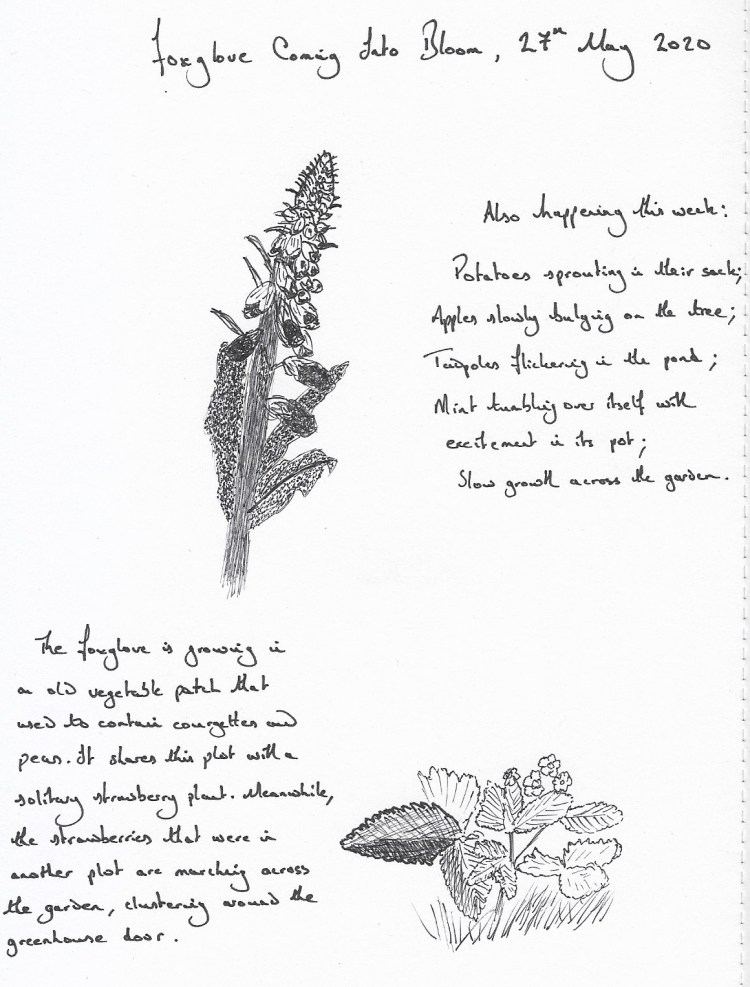 Foxglove Coming Into Bloom, 27th May 2020
Also happening this week:
Potatoes sprouting in their sack;
Apples slowly bulging on the tree;
Tadpoles flickering in the pond;
Mint tumbling over itself with
excitement in its pot;
Slow growth across the garden.
The foxglove is growing in
an old vegetable patch that
used to contain courgettes and
peas. It shares this plot with a
solitary strawberry plant. Meanwhile,
the strawberries that were in
another plot are marching across
the garden, clustering around the
greenhouse door.